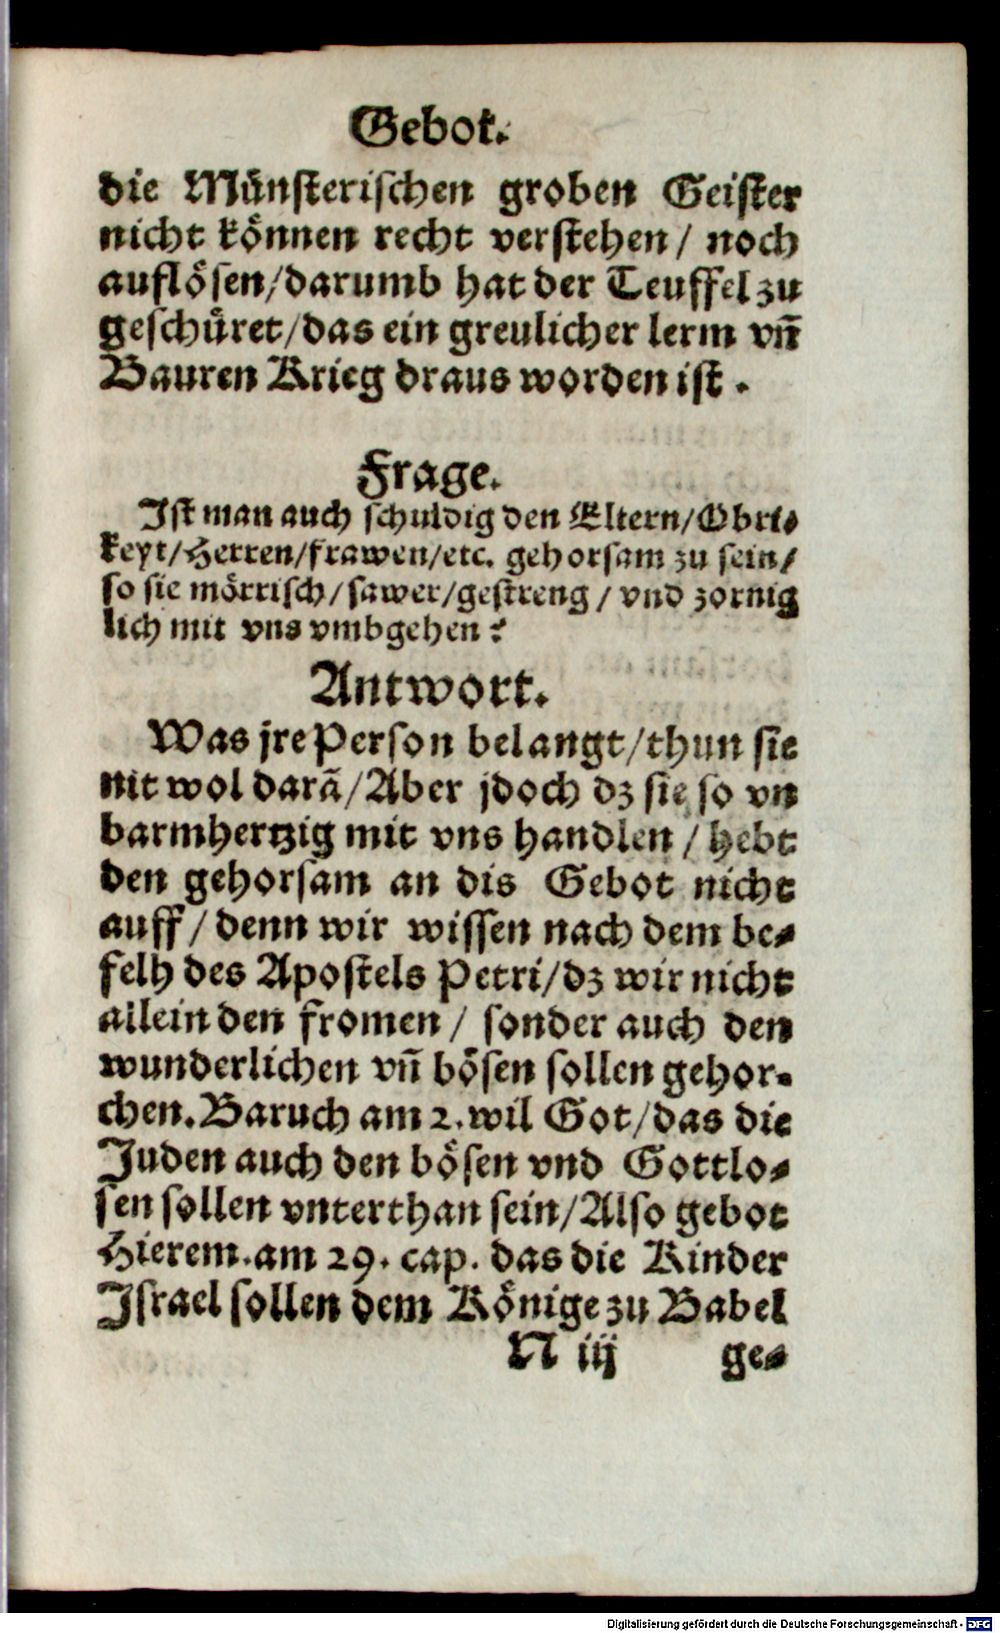 Gebot.
die Münsterischen groben Geister
nicht können recht verstehen/ noch
auflösen/darumb hat der Teuffel zu
geschüret/das ein greulicher lerm vñ
Bauren Krieg draus worden ist.
Frage.
Ist man auch schuldig den Eltern/Obri-
keyt/Herren/frawen/etc. gehorsam zu sein/
so sie mörrisch/sawer/gestreng/ vnd zornig
lich mit vns vmbgehen?
Antwort.
Was jre Person belangt/thun sie
nit wol darã/Aber jdoch dz sie so vn
barmhertzig mit vns handlen/ hebt
den gehorsam an dis Gebot nicht
auff/denn wir wissen nach dem be-
felh des Apostels Petri/dz wir nicht
allein den fromen/ sonder auch den
wunderlichen vñ bösen sollen gehor-
chen. Baruch am 2. wil Got/das die
Juden auch den bösen vnd Gottlo-
sen sollen vnterthan sein/Also gebot
Hierem. am 29. cap. das die Kinder
Israel sollen dem Könige zu Babel
N iij ge-
Digitalisierung gefördert durch die Deutsche Forschungsgemeinschaft - DFG